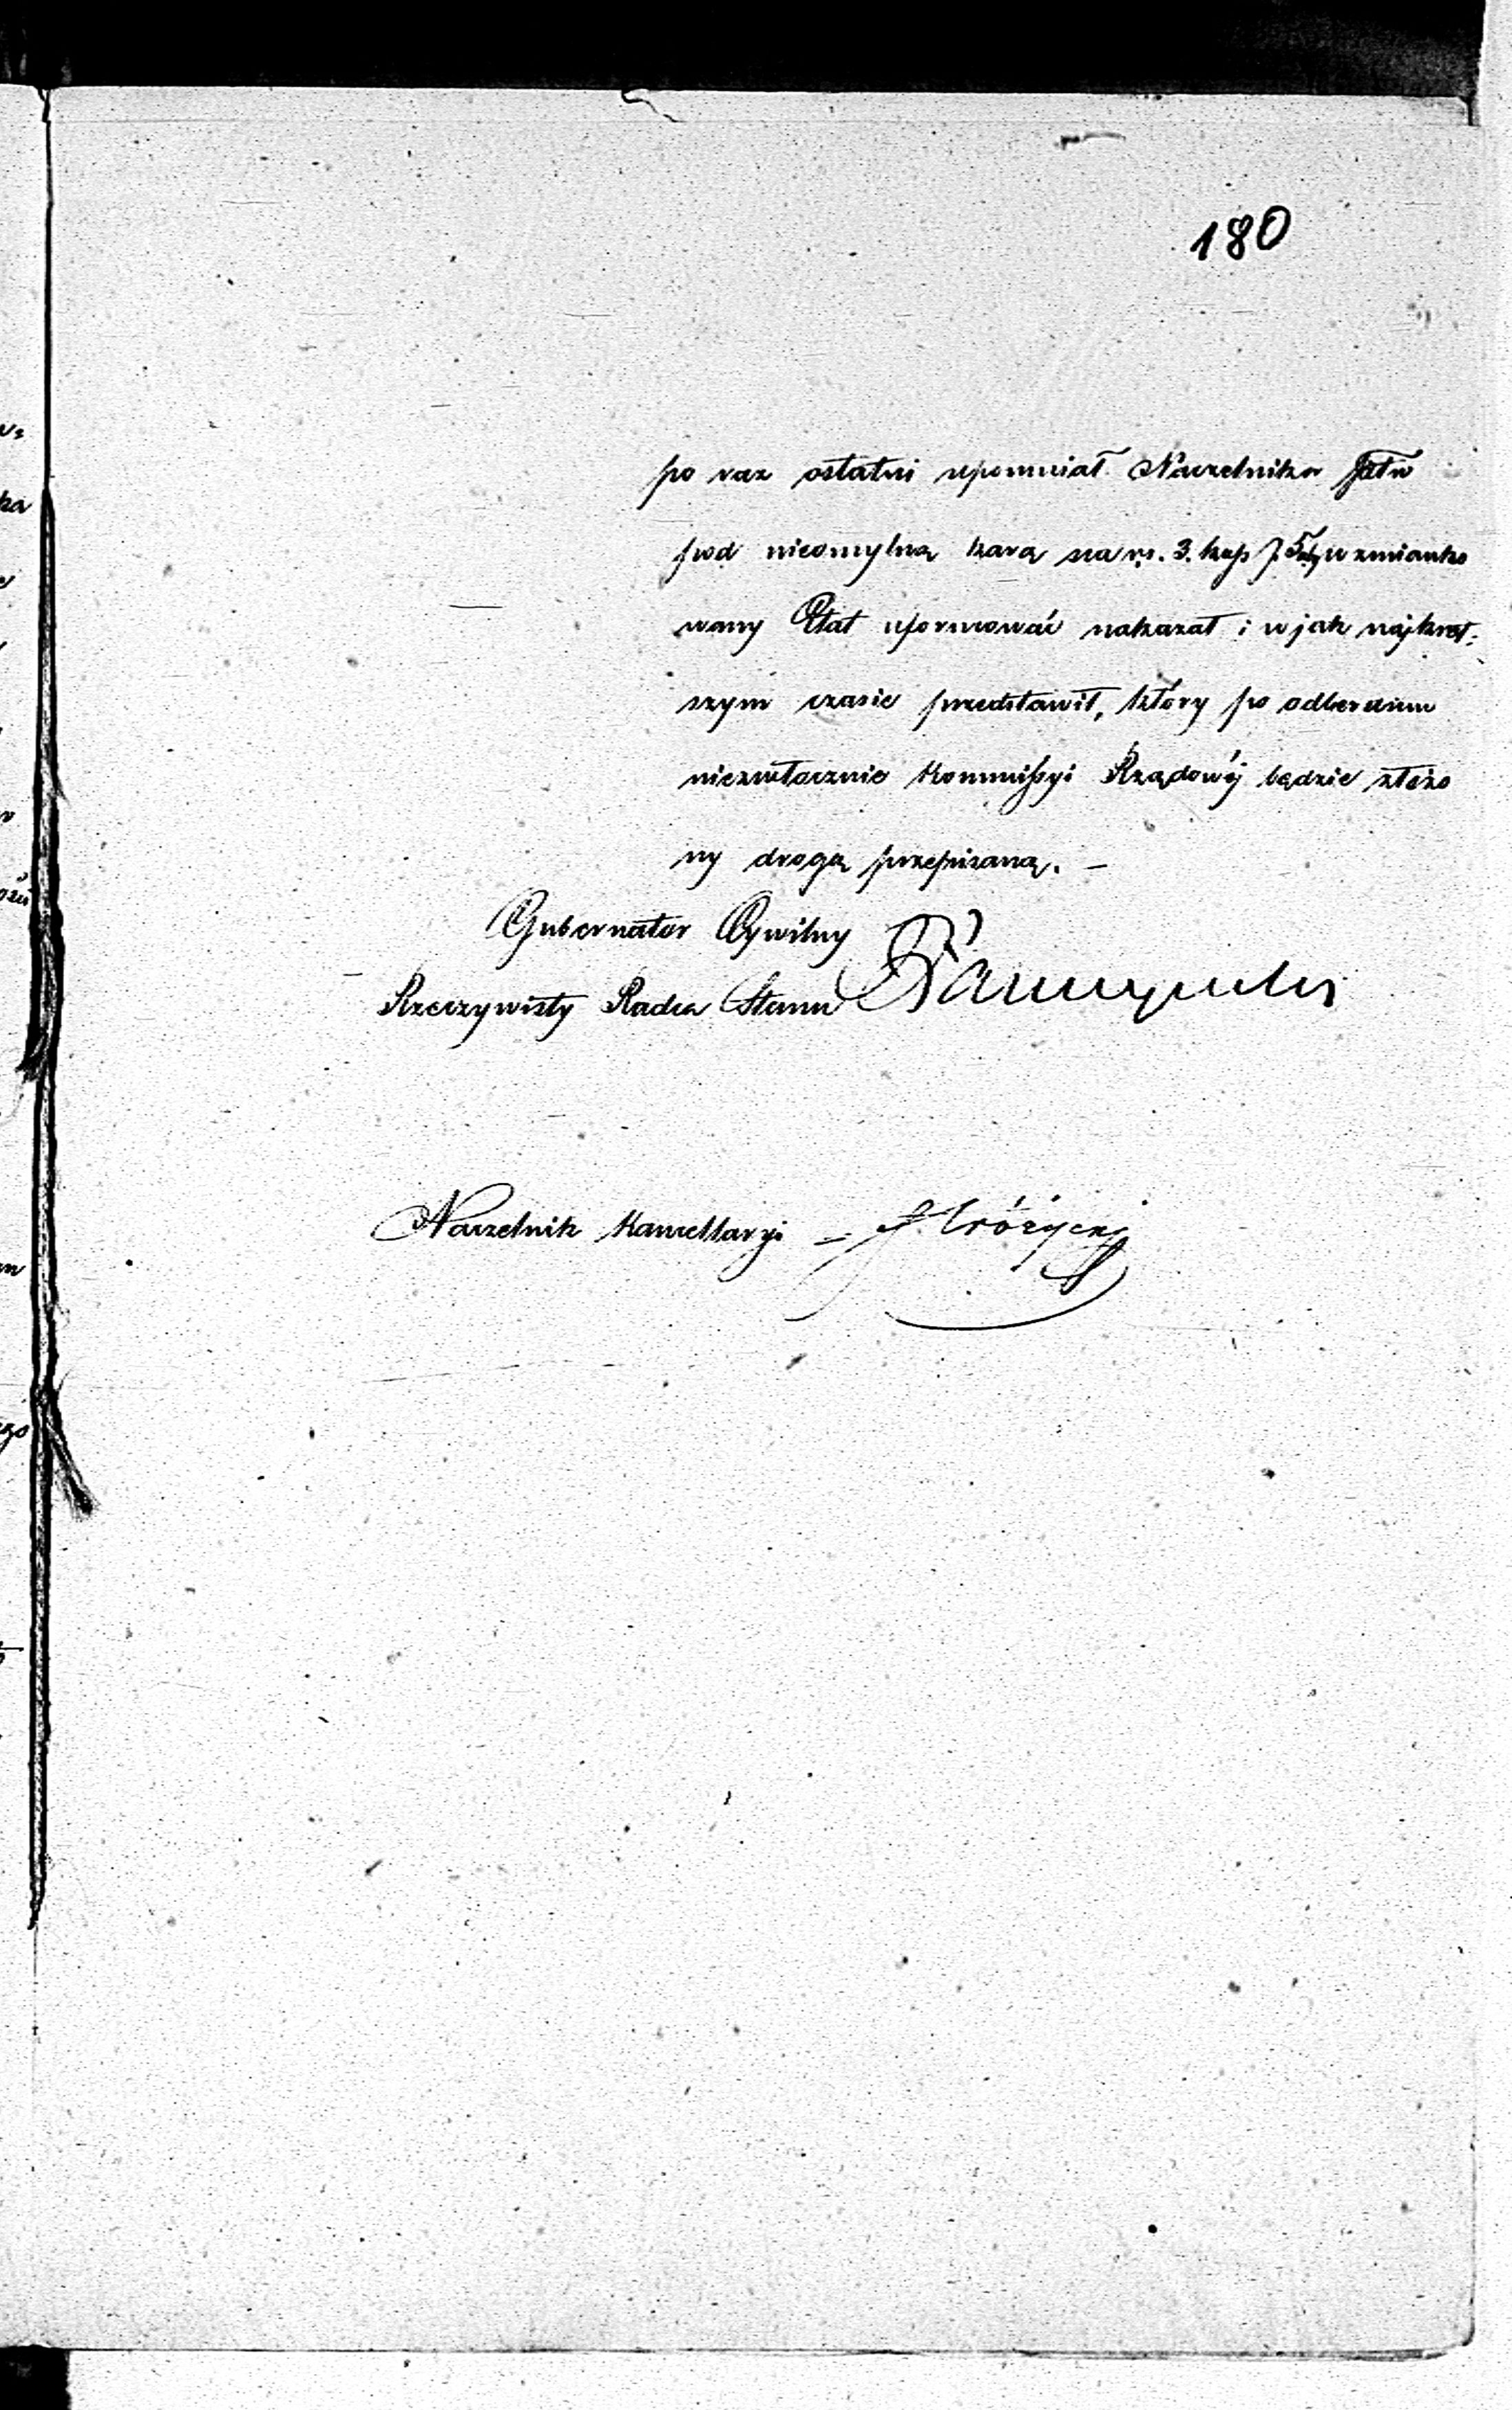 180
po raz ostatni upomniał Naczelnika Pttu
pod nieomylną karą na rs. 3. kop 75, wzmianko
wany Etat uformować nakazał i w jak najkrót:
szym czasie przedstawił, który po odbereniu
niezwłocznie Kommissyi Rządowéj będzie złożo
ny drogą przepisaną. –
Gubernator Cywilny
Rzeczywisty Radca Stanu
Naczelnik Kancellaryi –